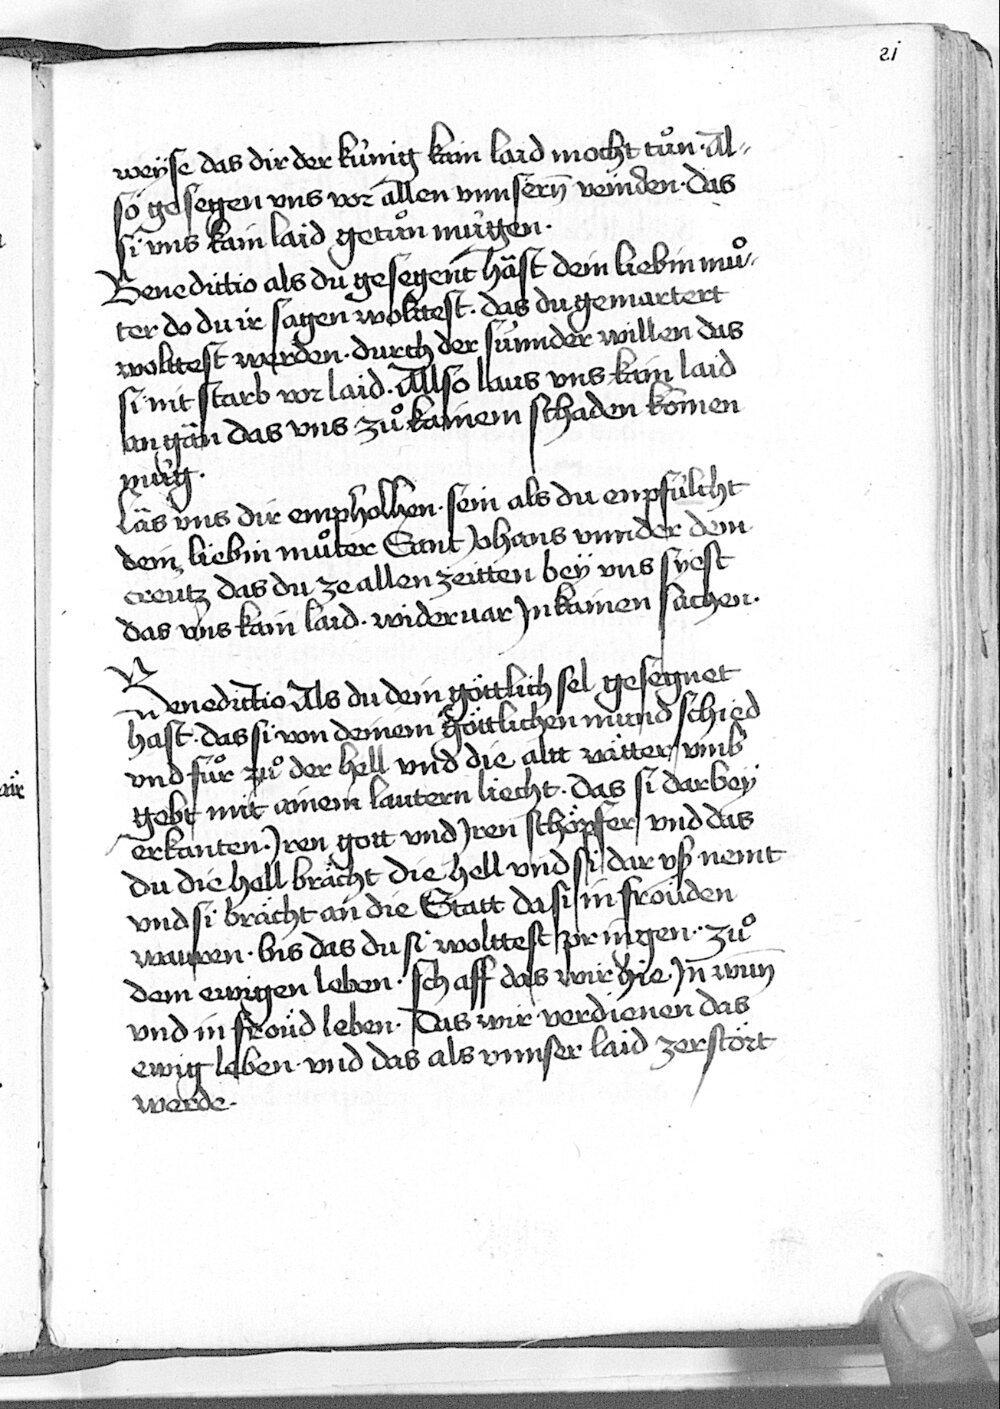 21
weÿse das dir der kúnig kain laid mocht tuͦn · Al-
so gesegen vns vor allen vnnsern̄ veinden · das
si vns kain laid getuͦn múgen ·
Benedictio als du gesegent häst dein liebin muͦ-
ter do du ir sagen wolttest · das du gemartert
wolttest werden · durch der súnnder willen das
si nit starb vor laid · Allso laus vns kain laid
an gän das vns zuͦ kainem schaden komen
múg ·
Läs vns dir empholhen · sein als du enpfúlcht
dein liebin muͦter Sant Johans vnnder dem
creútz das du ze allen zeitten beÿ vns sÿest
das vns kain laid · wideruar Jn kainen sachen ·
Benedictio Als du dein göttlich sel gesegnet
hast · das si von deinem göttlichen mund schied
vnd fuͦr zuͦ der hell vnd die altt vätter vmb
gebt mit ainem lautern liecht · das si dar beÿ
erkanten · Jren gott vnd Jren schöpfer vnd das
du die hell brächt die hell vnd si dar vß nemt
vnd si brächt an die Statt da si in froüden
waren · bis das du si wolttest pringen · zuͦ
dem ewigen leben · schaff das wir hie Jn wun̄
vnd in froüd leben · Das wir verdienen das
ewig leben · vnd das als vnnser laid zerstört
werde ·